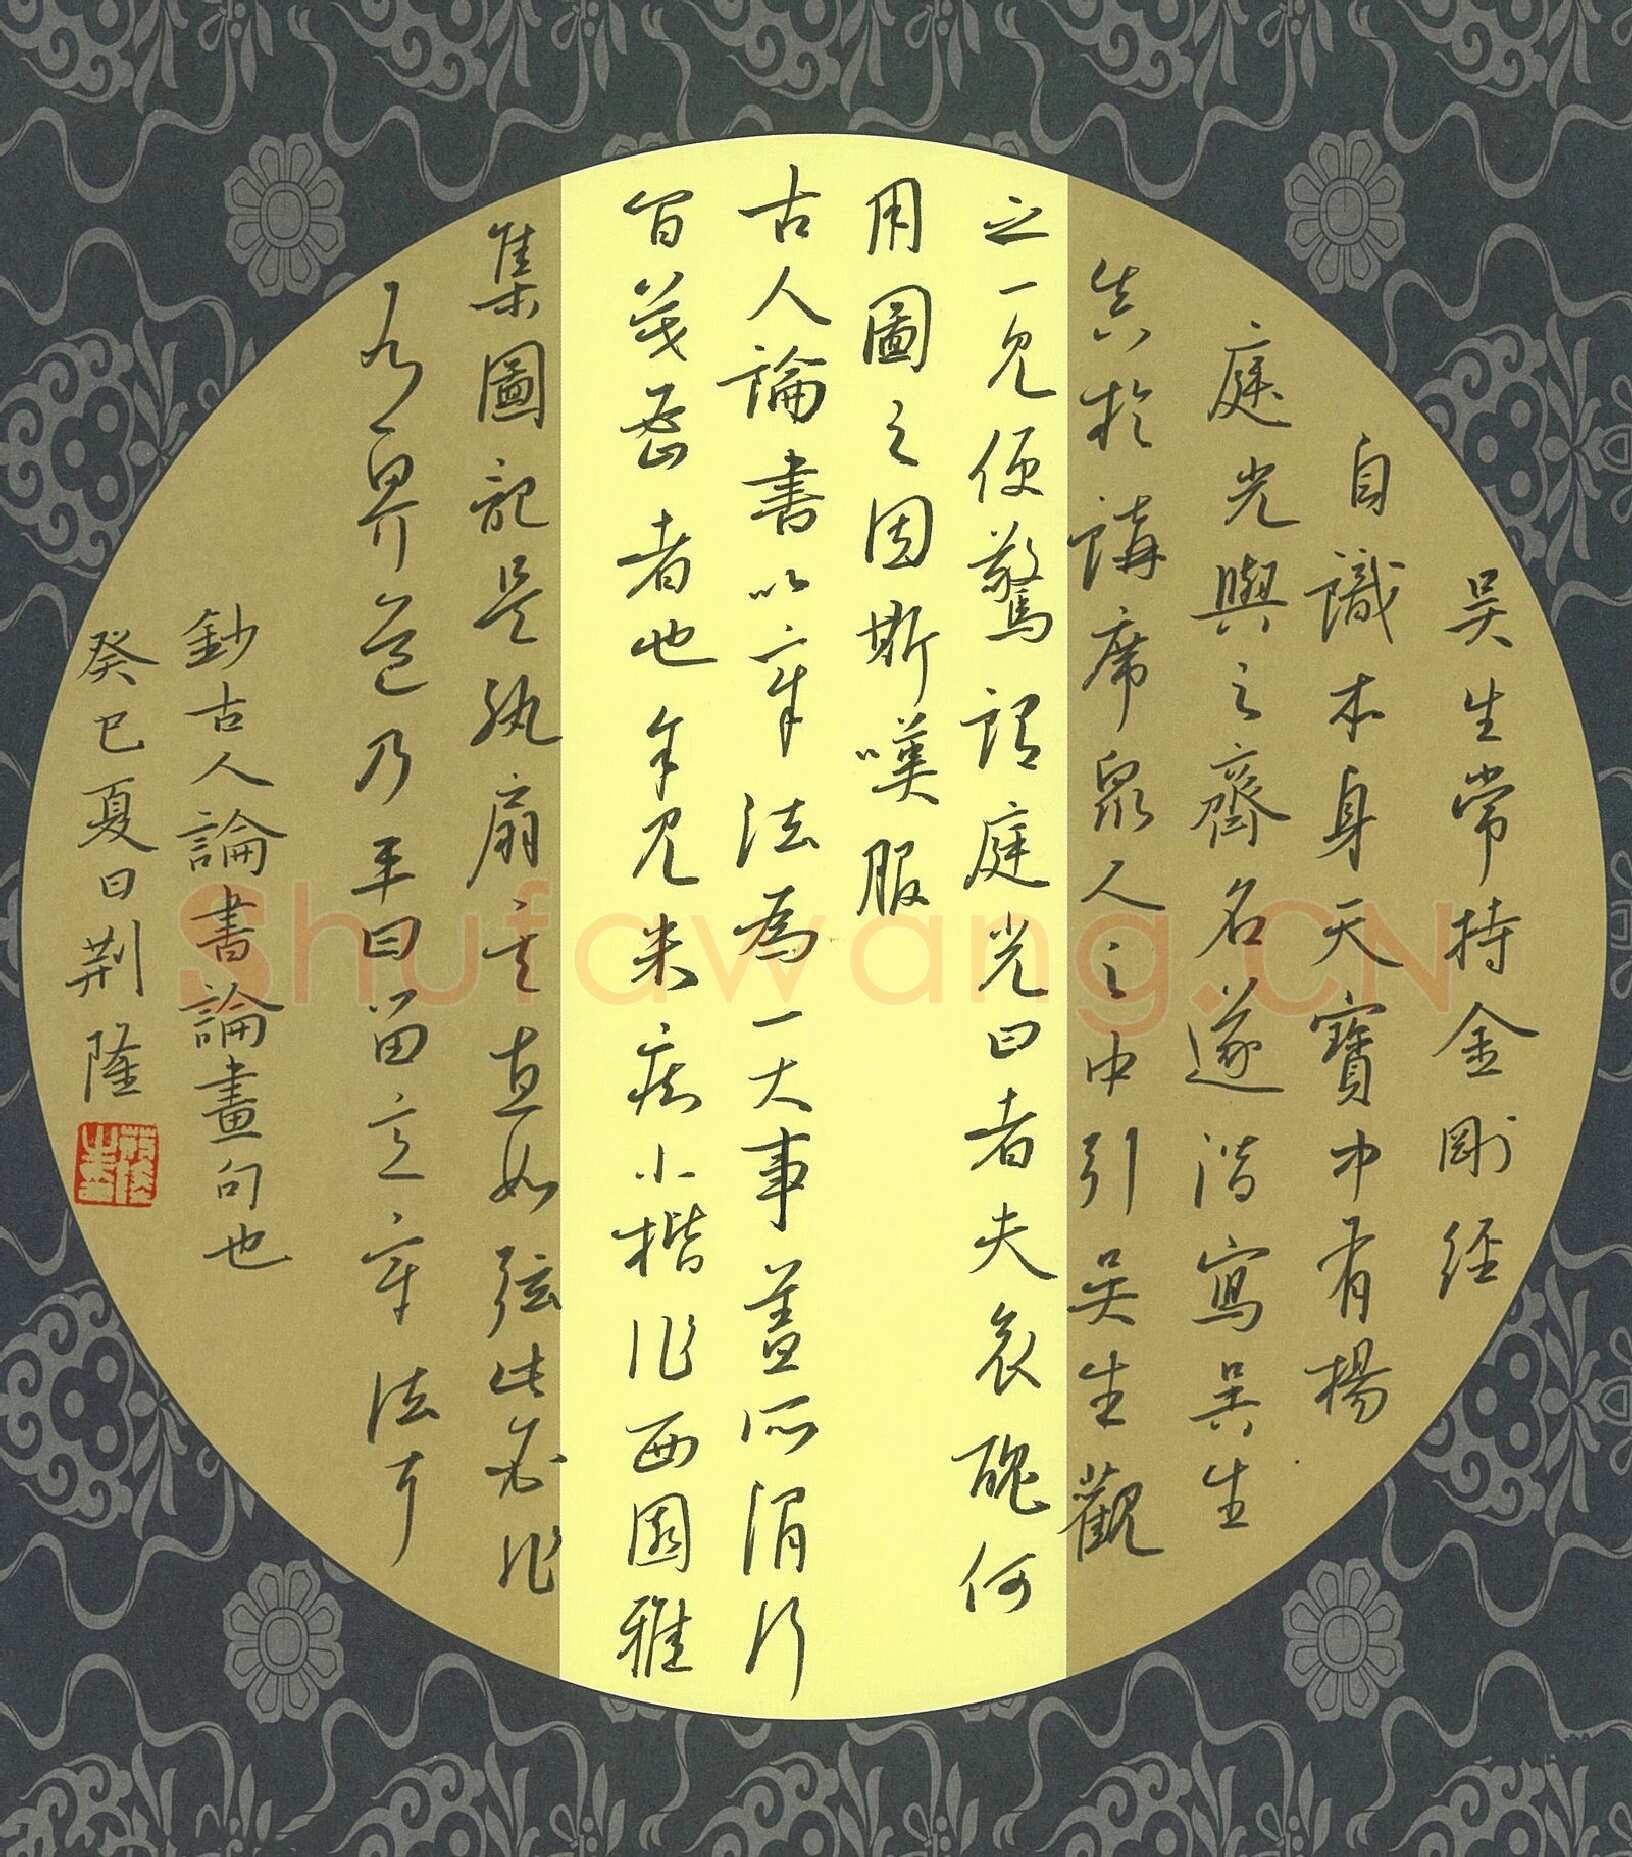 吴生常持金剛經
自識本身天寶中有楊
庭光與之齊名遂潛寫吴生
真於講席眾人之中引吴生觀
之一見便驚謂庭光曰老夫衰醜何
用圖之因斯嘆服
古人論書以章法為一大事蓋所謂行
間茂密者也余見米痴小楷作西園雅
集圖記是紈扇其直如弦此必作
有界色乃平日留意章法耳
鈔古人論書論畫句也
癸巳夏日荆隆
Shufawang.CN